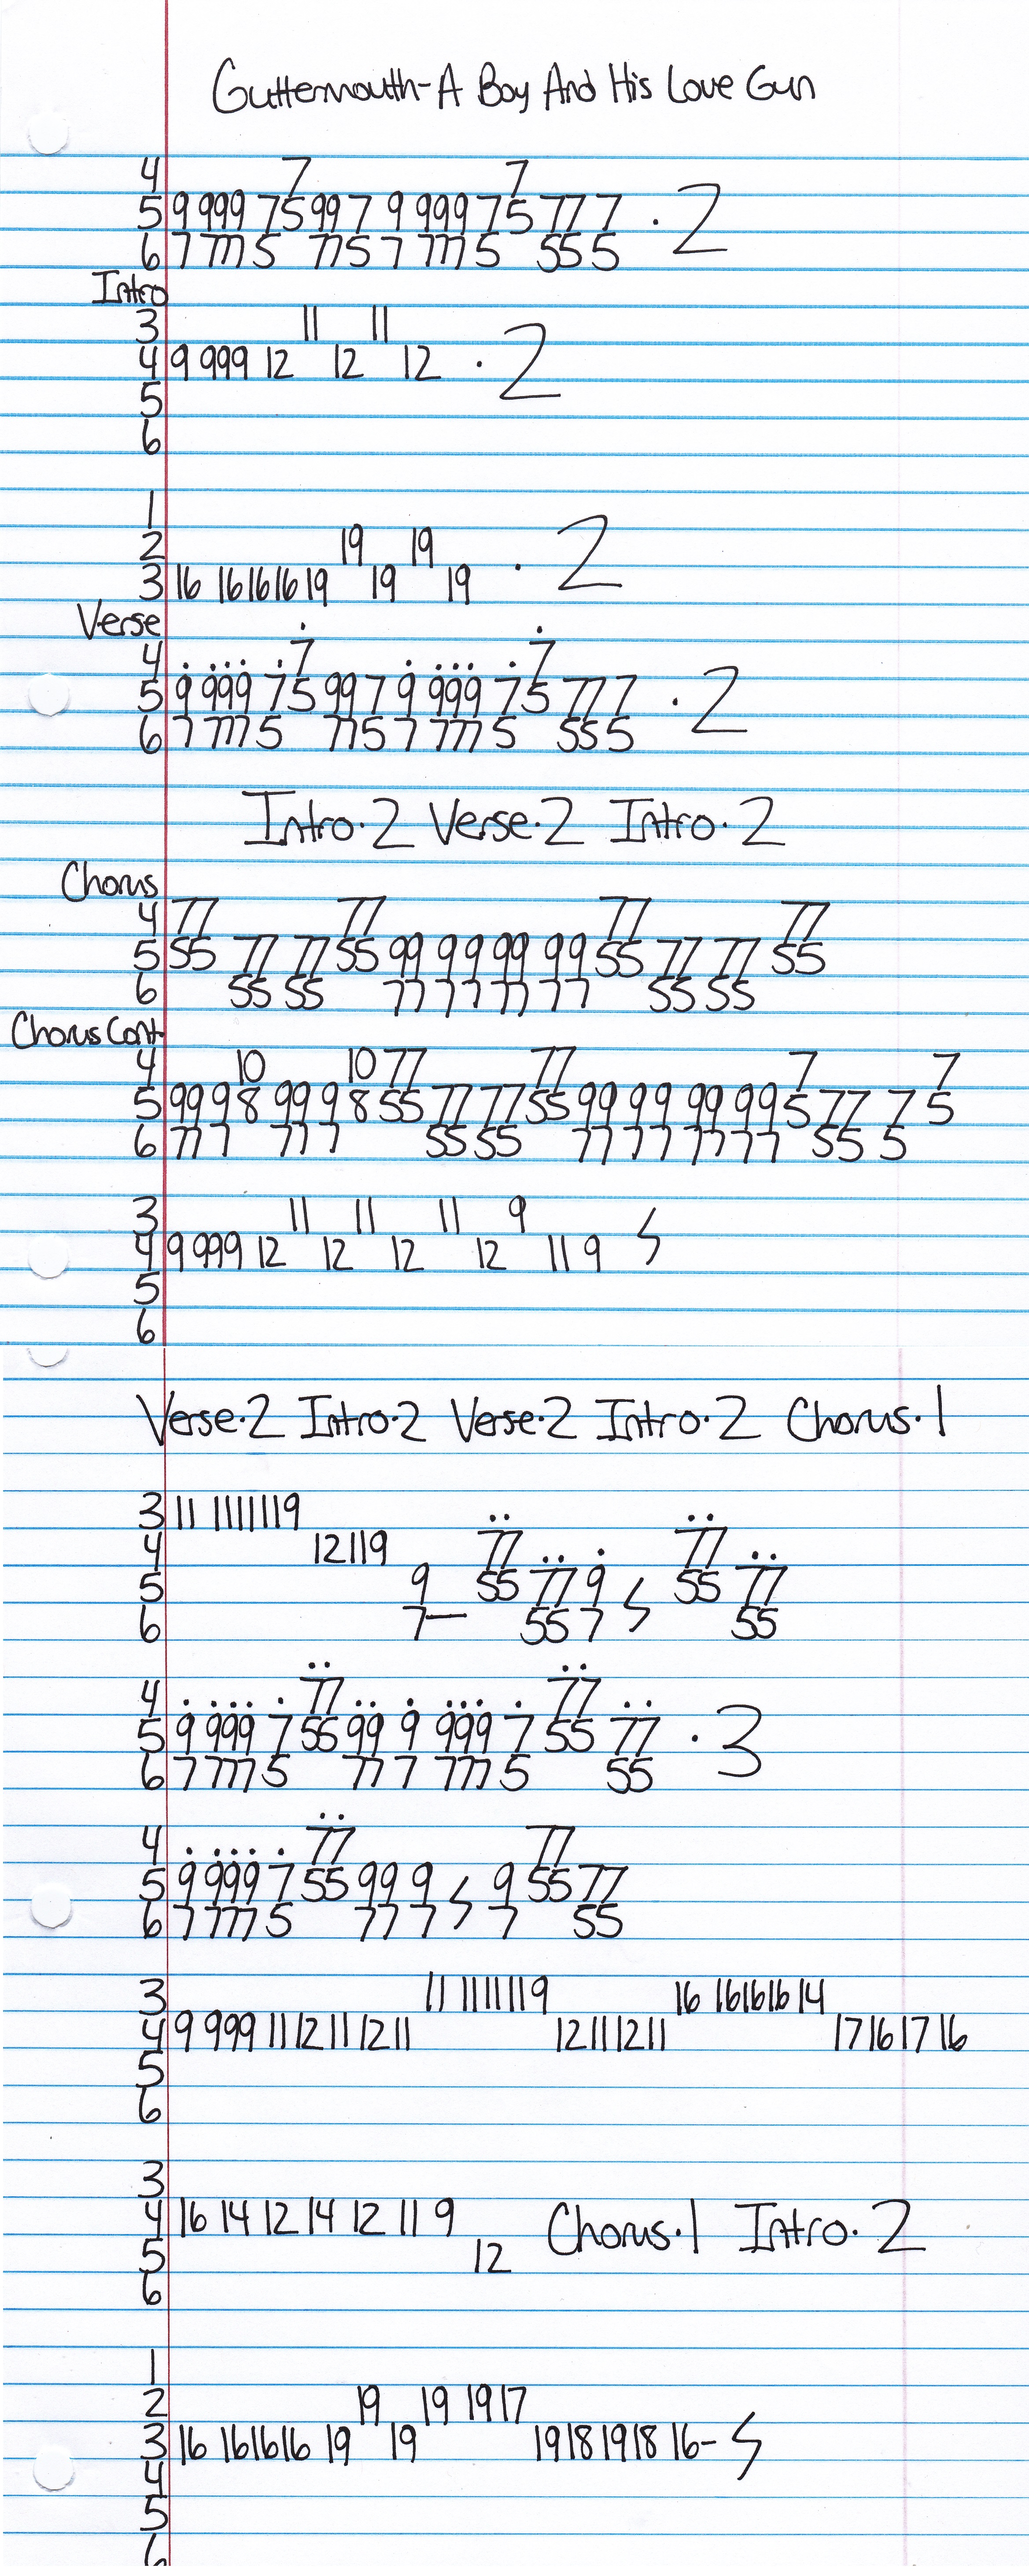 Guttermouth-A Boy And His Love Gun
4 7 7
5 9 999 75 99 7 9 999 75 77 7 · 2
6 7 777 5 775 7 777 5 55 5
Intro
3 11 11
4 9 999 12 12 12 · 2
5
6
1
2 19 19
3 16 161616 19 19 19 · 2
Verse
4 7 7
5 9 999 75 99 7 9 999 75 77 7 · 2
6 7 777 5 775 7 777 5 55 5
Intro·2 Verse·2 Intro·2
Chorus
4 77 77 77 77
5 55 77 77 55 99 99 99 99 55 77 77 55
6 55 55 77 77 77 77 55 55
Chorus Cont.
4 10 10 77 77 7 7
5 99 9 8 99 9 8 55 77 77 55 99 99 99 99 5 77 7 5
6 77 7 77 7 55 55 77 77 77 77 55 5
3 11 11 11 9
4 9 999 12 12 12 12 11 9
5
6
Verse·2 Intro·2 Verse·2 Intro·2 Chorus·1
3 11 111111 9
4 12 11 9 77 77
5 9 55 77 9 55 77
6 7– 55 7 55
4 77 77
5 9 999 7 55 99 9 999 7 55 77 · 3
6 7 777 5 77 7 777 5 55
4 77 77
5 9 999 7 55 99 9 9 55 77
6 7 777 5 77 7 7 55
3 11 111111 9 16 161616 14
4 9 999 11 12 11 12 11 12 11 12 11 17 16 17 16
5
6
3
4 16 14 12 14 12 11 9 Chorus·1 Intro·2
5 12
6
1
2 19 19 19 17
3 16 161616 19 19 19 18 19 18 16–
4
5
6